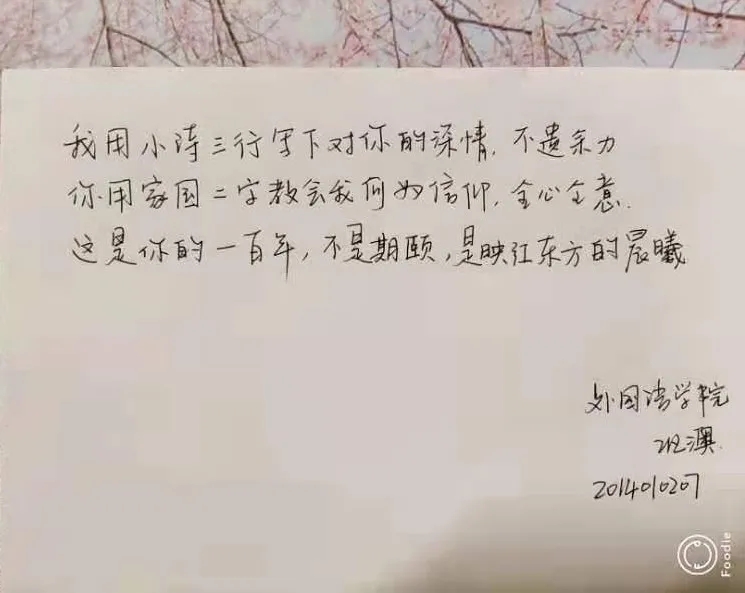 我用小诗三行写下对你的深情，不遗余力
你用家国二字教会我何如信仰，全心全意.
这是你的一百年，不是期颐，是映红东方的晨曦
外国语学院
澳
2014010207
Foodie